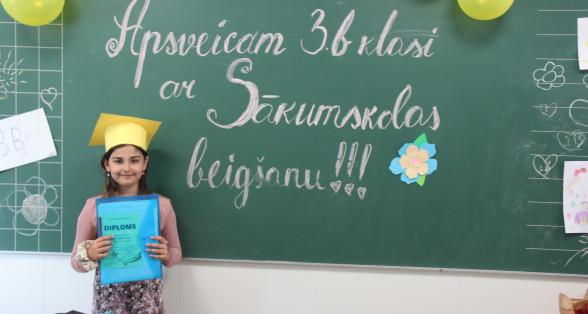 Apsveicam 3.b klasi
ar Sākumskolas
beigšanu!!!
3B
DIPLOMS